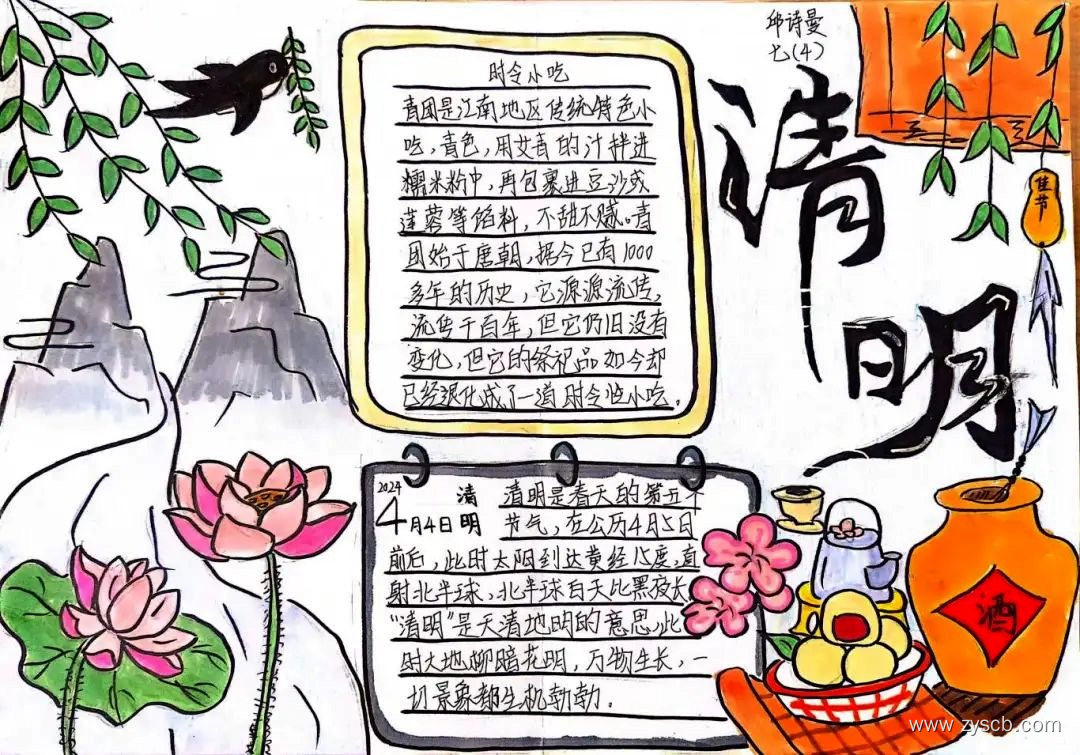 邱诗曼
七(4)
清明
佳节
时令小吃
青团是江南地区传统特色小
吃，青色，用艾青的汁拌进
糯米粉中，再包裹进豆沙或
莲蓉等馅料，不甜不腻。青
团始于唐朝，据今已有1000
多年的历史，它源源流传，
流传千百年，但它仍旧没有
变化，但它的祭祀品如今却
已经退化成了一道时令性小吃。
2024
4月4日 清明
清明是春天的第五个
节气，在公历4月5日
前后，此时太阳到达黄经15度，直
射北半球，北半球白天比黑夜长
“清明”是天清地明的意思，此
时大地柳暗花明，万物生长，一
切景象都生机勃勃。
酒
www.zyscb.com